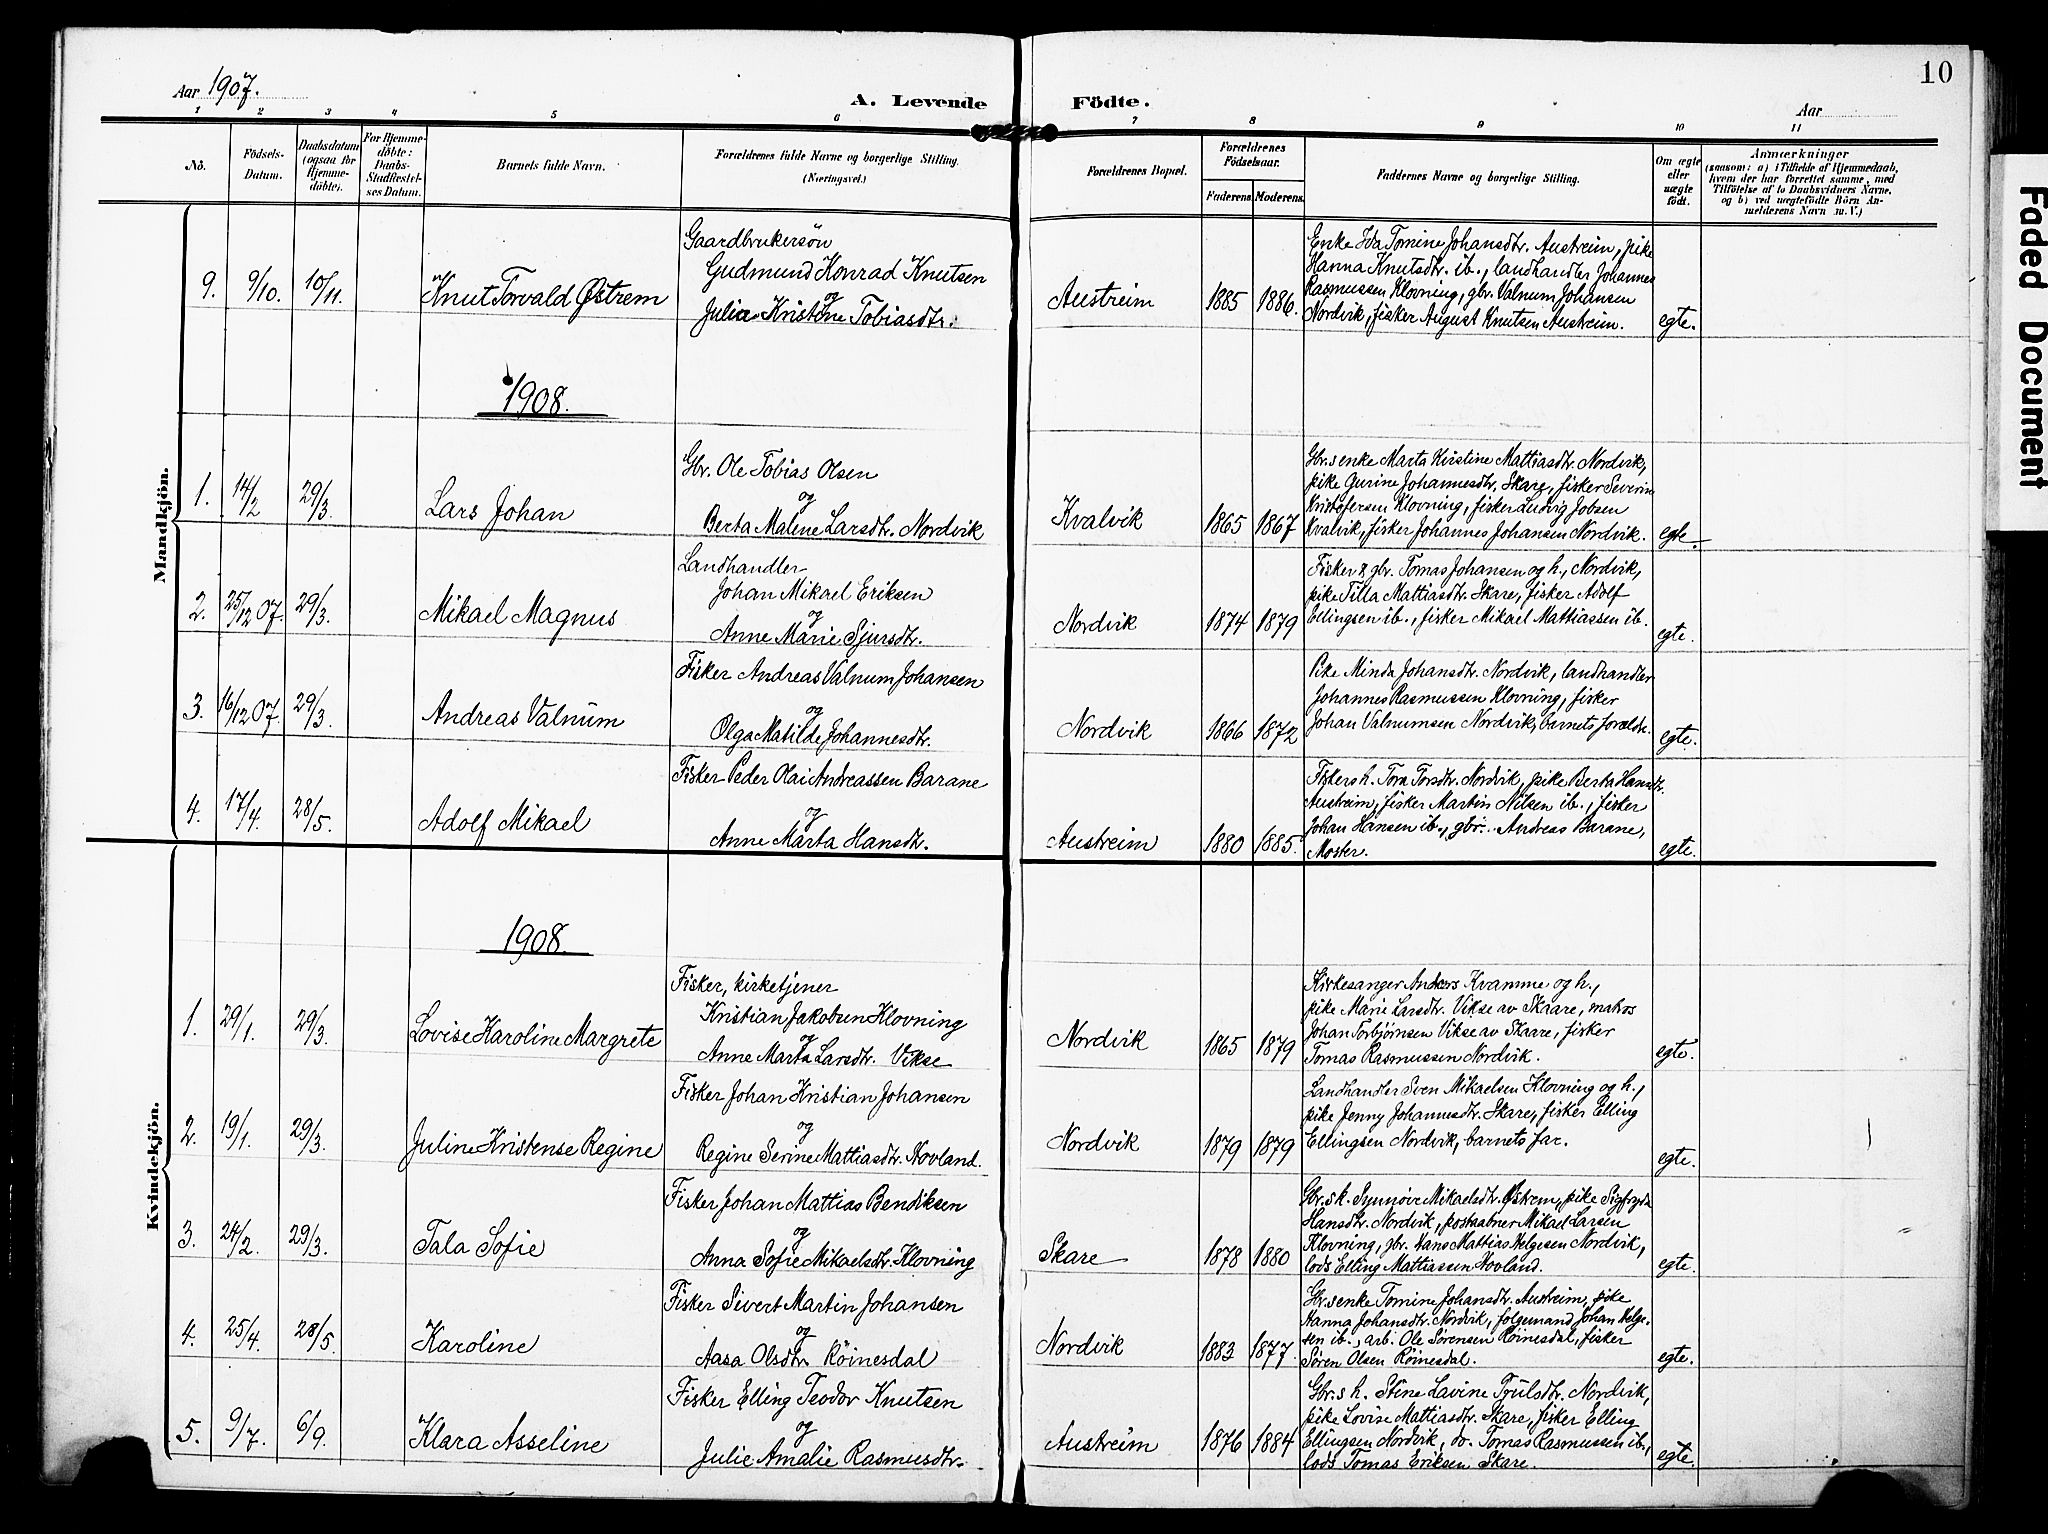 10
Aar 1907.
A. Levende Födte.
Aar
1 2 3 4 5 6 7 8 9 10 11
No.
Födsels-
Datum.
Daabsdatum
(ogsaa for
Hjemme-
döbte).
For Hjemme-
döbte:
Daabs-
Stadfæstel-
ses Datum.
Barnets fulde Navn.
Forældrenes fulde Navne og borgerlige Stilling.
(Næringsvei.)
Forældrenes Bopæl.
Forældrenes
Födselsaar.
Faderens Moderens
Faddernes Navne og borgerlige Stilling.
Om ægte
eller
uægte
født.
Anmærkninger
(saasom: a) i Tilfælde af Hjemmedaab,
hvem der har forrettet samme, med
Tilföielse af to Daabsvidners Navne,
og b) ved uægtefödte Börn An-
melderens Navn m. V.)
Mandkjön.
9. 9/10. 10/11. Knut Torvald Østrem
Gaardbrukersøn
Gudmund Konrad Knutsen
og
Julie Kristine Tobiasdtr.
Austreim 1885 1886.
Enke Ida Tomine Johansdtr. Austreim, pike
Hanna Knutsdtr. ib., landhandler Johannes
Rasmussen Klovning, gbr. Valnum Johansen
Nordvik, fisker August Knutsen Austreim.
egte.
1908.
1. 14/2 29/3. Lars Johan
Gbr. Ole Tobias Olsen
og
Berta Malene Larsdtr. Nordvik
Kvalvik 1865 1867
Gbr.s enke Marta Kirstine Mattiasdtr. Nordvik,
pike Gurine Johannesdtr. Skare, fisker Severin
Kristofersen Klovning, fisker Ludvig Jobsen
Kvalvik, fisker Johannes Johansen Nordvik.
egte.
2. 25/12 07. 29/3. Mikael Magnus
Landhandler
Johan Mikael Eriksen
og
Anne Marie Sjursdtr.
Nordvik 1874 1879
Fisker & gbr. Tomas Johansen og h., Nordvik,
pike Tilla Mattiasdtr. Skare, fisker Adolf
Ellingsen ib., fisker Mikael Mattiassen ib.
egte.
3. 16/12 07. 29/3. Andreas Valnum
Fisker Andreas Valnum Johansen
og
Olga Matilde Johannesdtr.
Nordvik 1866 1872
Pike Minda Johansdtr. Nordvik, landhandler
Johannes Rasmussen Klovning, fisker
Johan Valnumsen Nordvik, barnets foreldre.
egte.
4. 17/4. 28/5. Adolf Mikael
Fisker Peder Olai Andreassen Barane
og
Anne Marta Hansdtr.
Austreim 1880 1885.
Fiskers h. Tora Torsdtr. Nordvik, pike Berta Hansdtr.
Austreim, fisker Martin Nilsen ib., fisker
Johan Hansen ib., gbr. Andreas Barane,
Moster.
egte.
Kvindekjön.
1908.
1. 29/1. 29/3. Lovise Karoline Margrete
Fisker, kirketjener
Kristian Jakobsen Klovning
og
Anne Marta Larsdtr. Vikse
Nordvik 1865 1879
Kirkesanger Anders Kvamme og h.,
pike Marie Larsdtr. Vikse av Skaare, matros
Johan Torbjørnsen Vikse av Skaare, fisker
Tomas Rasmussen Nordvik.
egte.
2. 19/1. 29/3. Juline Kristense Regine
Fisker Johan Kristian Johansen
og
Regine Serine Mattiasdtr. Hovland.
Nordvik 1879 1879
Landhandler Sven Mikaelsen Klovning og h.,
pike Jenny Johannesdtr. Skare, fisker Elling
Ellingsen Nordvik, barnets far.
egte.
3. 24/2. 29/3. Tala Sofie
Fisker Johan Mattias Bendiksen
og
Anna Sofie Mikaelsdtr. Klovning
Skare 1878 1880
Gbr.s k. Synnøve Mikaelsdtr. Østrem, pike Sigfryda
Hansdtr. Nordvik, postaabner Mikael Larsen
Klovning, gbr. Hans Mattias Helgesen Nordvik,
lods Elling Mattiassen Hovland.
egte.
4. 25/4. 28/5. Karoline
Fisker Sivert Martin Johansen
og
Aasa Olsdtr. Röinesdal
Nordvik 1883 1877.
Gbr.s enke Tomine Johansdtr. Austreim, pike
Hanna Johansdtr. Nordvik, følgemand Johan Helge-
sen ib., arb. Ole Sørensen Röinesdal, fisker
Søren Olsen Röinesdal.
egte.
5. 9/7. 6/9. Klara Asseline
Fisker Elling Teodor Knutsen
og
Julie Amalie Rasmusdtr.
Austreim 1876 1884
Gbr.s h. Stine Lavine Trulsdtr. Nordvik,
pike Lovise Mattiasdtr. Skare, fisker Elling
Ellingsen Nordvik, do. Tomas Rasmussen ib.,
lods Tomas Eriksen Skare.
egte.
Faded Document